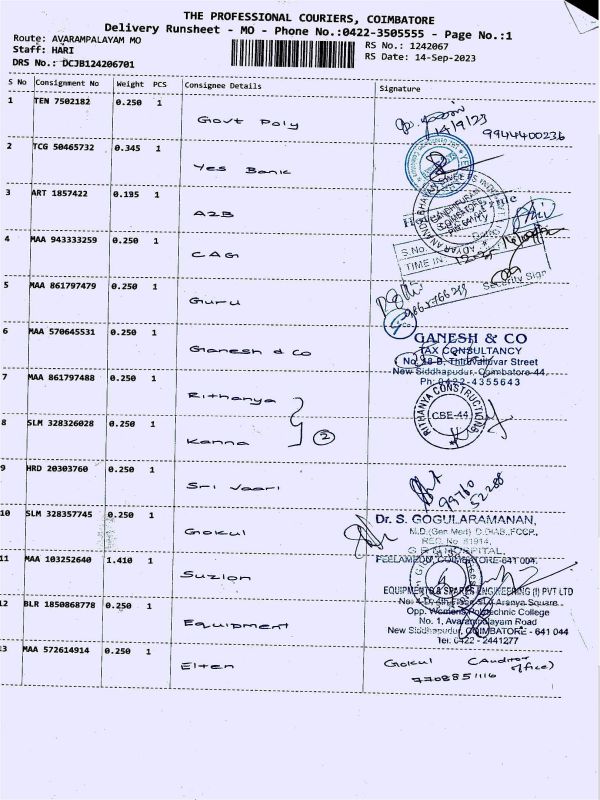 THE PROFESSIONAL COURIERS, COIMBATORE
Delivery Runsheet - MO - Phone No.:0422-3505555 - Page No.:1
Route: AVARAMPALAYAM MO
RS No.: 1242067
Staff: HARI
RS Date: 14-Sep-2023
DRS No.: DCJB124206701
S No Consignment No Weight PCS Consignee Details Signature
1 TEN 7502182 0.250 1 Govt Poly
14/9/23
9944400236
2 TCG 50465732 0.345 1 Yes Bank
3 ART 1857422 0.195 1 A2B
4 MAA 943333259 0.250 1 CAG
S.No.
TIME IN:
Security Sign
5 MAA 861797479 0.250 1 Guru
6 MAA 570645531 0.250 1 Ganesh & Co
GANESH & CO
TAX CONSULTANCY
Thiruvalluvar Street
New Siddhapudur, Coimbatore-44.
Ph: 0422-4355643
7 MAA 861797488 0.250 1 Rithanya
RITHANYA CONSTRUCTIONS
CBE-44
8 SLM 328326028 0.250 1 Kanna
2
9 HRD 20303760 0.250 1 Sri Vaari
99760
52208
10 SLM 328357745 0.250 1 Gokul
Dr. S. GOGULARAMANAN,
M.D.(Gen Med) D.DIAB.,FCCP.,
REG. No. 61914,
HOSPITAL,
PEELAMEDU, COIMBATORE-641 004.
11 MAA 103252640 1.410 1 Suzlon
EQUIPMENTS & SPARES ENGINEERING (I) PVT LTD
Aranya Square
Opp. Womens Polytechnic College
No. 1, Avarampalayam Road
New Siddhapudur, COIMBATORE - 641 044
Tel: 0422 - 2441277
12 BLR 1850868778 0.250 1 Equipment
13 MAA 572614914 0.250 1 Elten
Gokul (Auditor office)
7708851116